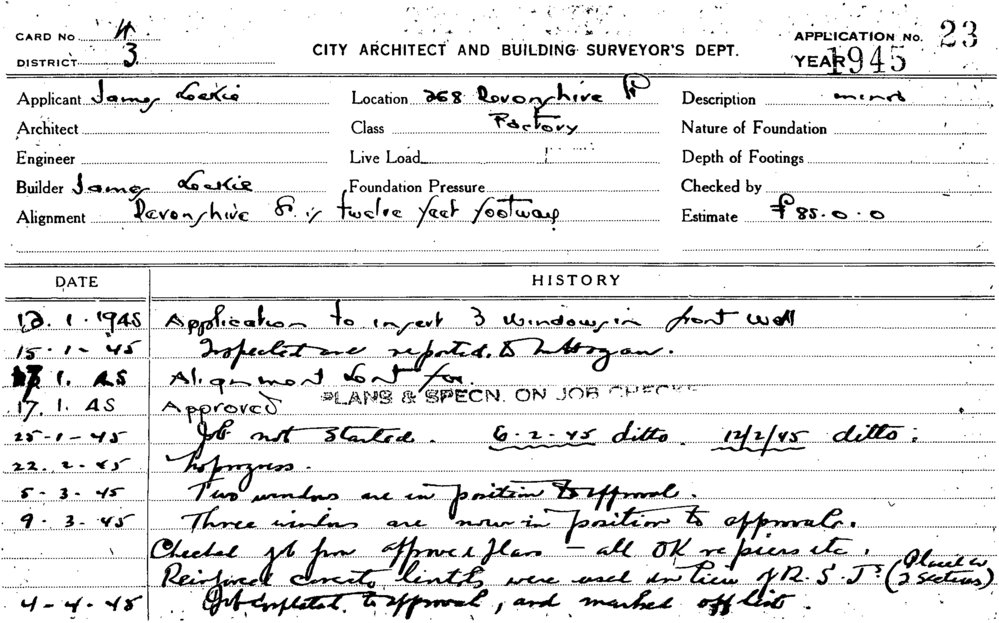 CARD No 4
DISTRICT 3
CITY ARCHITECT AND BUILDING SURVEYOR'S DEPT.
APPLICATION No. 23
YEAR 1945
Applicant James Leckie Location 268 Devonshire St Description minor
Architect Class Factory Nature of Foundation
Engineer Live Load Depth of Footings
Builder James Leckie Foundation Pressure Checked by
Alignment Devonshire St. is twelve feet footway Estimate £85.0.0
DATE HISTORY
12.1.1945 Application to insert 3 windows in front wall
15-1-45 Inspected and reported to
1.45 Alignment sent for
PLANS & SPECN. ON JOB CHECKE
17.1.45 Approved
25-1-45 Job not started. 6-2-45 ditto. 12/2/45 ditto.
22.2.45 No progress.
5-3-45 Two windows are in position to approval.
9.3.45 Three windows are now in position to approval.
Checked job from approved plans - all OK re piers etc.
Reinforced concrete lintels were used in lieu of R.S.Js (Placed in 2 sections)
4-4-45 Job completed to approval, and marked off list.